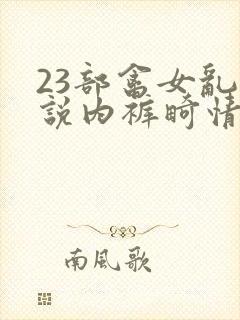 23部畲女亂
說内裤畸情
南風歌